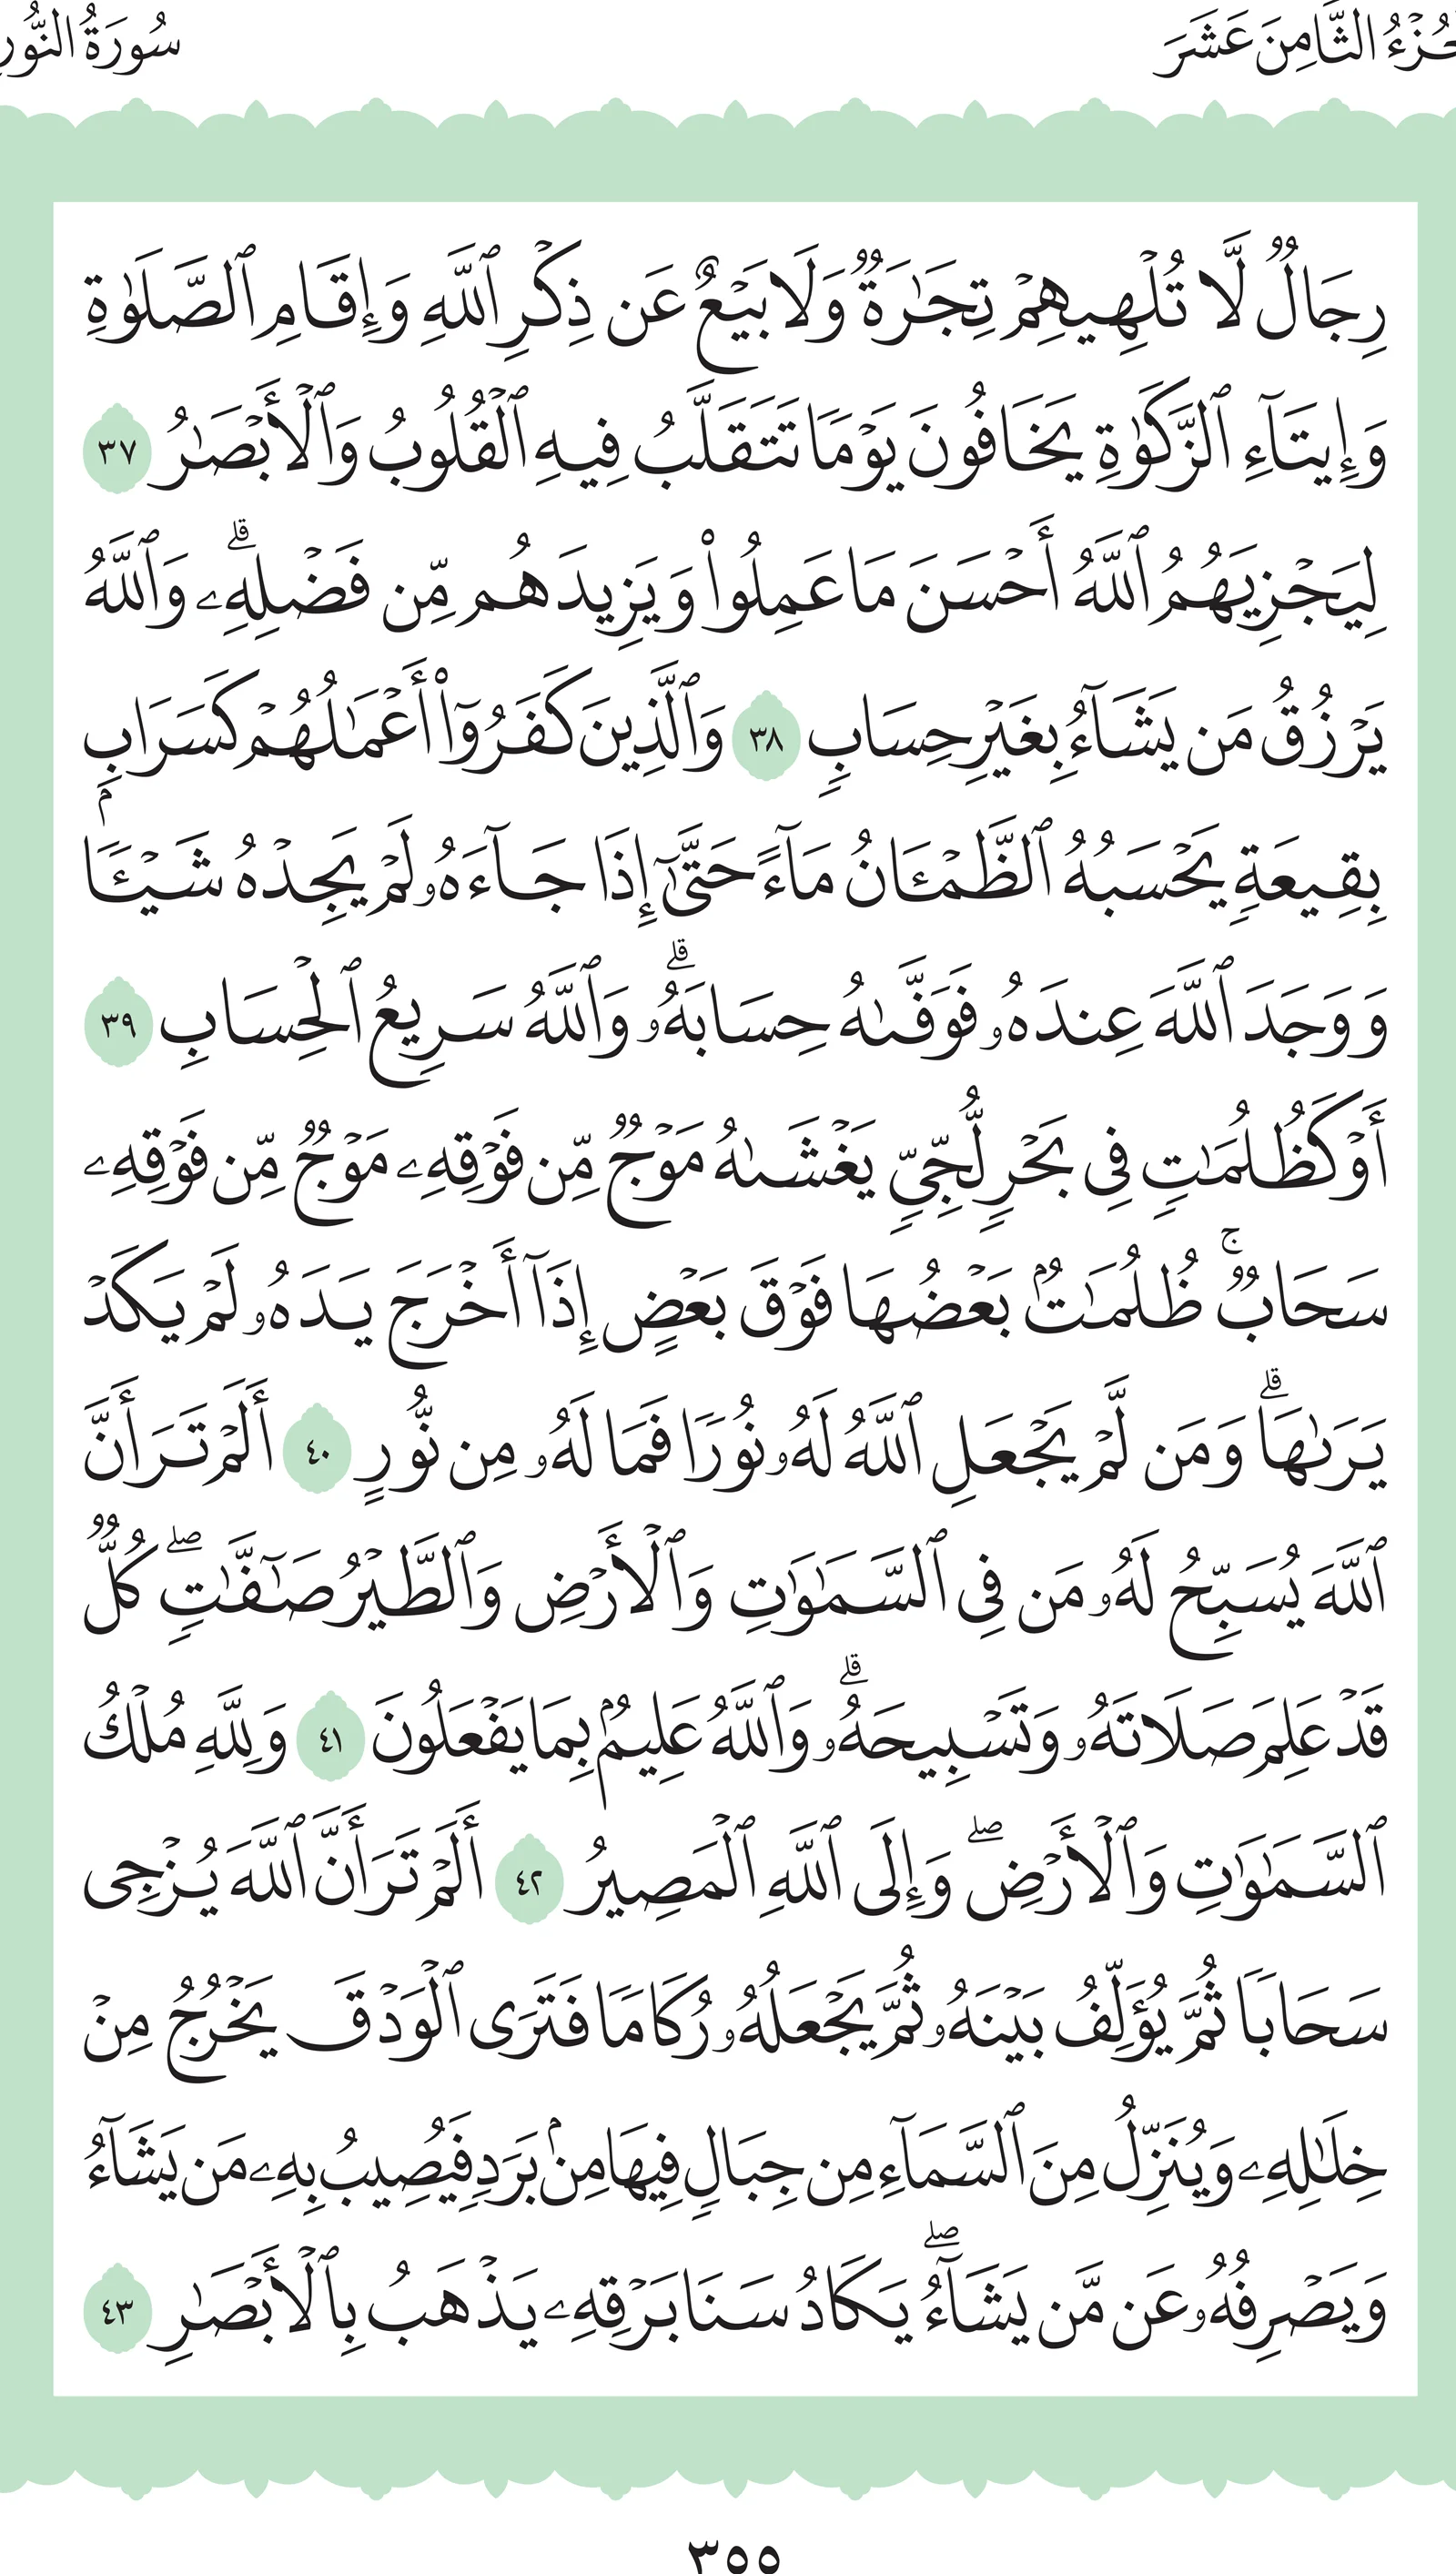 الجُزْءُ الثَّامِنَ عَشَرَ
سُورَةُ النُّورِ
رِجَالٌ لَّا تُلْهِيهِمْ تِجَـٰرَةٌ وَلَا بَيْعٌ عَن ذِكْرِ ٱللَّهِ وَإِقَامِ ٱلصَّلَوٰةِ
وَإِيتَآءِ ٱلزَّكَوٰةِ يَخَافُونَ يَوْمًا تَتَقَلَّبُ فِيهِ ٱلْقُلُوبُ وَٱلْأَبْصَـٰرُ ٣٧
لِيَجْزِيَهُمُ ٱللَّهُ أَحْسَنَ مَا عَمِلُوا۟ وَيَزِيدَهُم مِّن فَضْلِهِۦ ۗ وَٱللَّهُ
يَرْزُقُ مَن يَشَآءُ بِغَيْرِ حِسَابٍ ٣٨ وَٱلَّذِينَ كَفَرُوٓا۟ أَعْمَـٰلُهُمْ كَسَرَابٍۭ
بِقِيعَةٍ يَحْسَبُهُ ٱلظَّمْـَٔانُ مَآءً حَتَّىٰٓ إِذَا جَآءَهُۥ لَمْ يَجِدْهُ شَيْـًٔا
وَوَجَدَ ٱللَّهَ عِندَهُۥ فَوَفَّىٰهُ حِسَابَهُۥ ۗ وَٱللَّهُ سَرِيعُ ٱلْحِسَابِ ٣٩
أَوْ كَظُلُمَـٰتٍ فِى بَحْرٍ لُّجِّىٍّ يَغْشَىٰهُ مَوْجٌ مِّن فَوْقِهِۦ مَوْجٌ مِّن فَوْقِهِۦ
سَحَابٌ ۚ ظُلُمَـٰتٌۢ بَعْضُهَا فَوْقَ بَعْضٍ إِذَآ أَخْرَجَ يَدَهُۥ لَمْ يَكَدْ
يَرَىٰهَا ۗ وَمَن لَّمْ يَجْعَلِ ٱللَّهُ لَهُۥ نُورًا فَمَا لَهُۥ مِن نُّورٍ ٤٠ أَلَمْ تَرَ أَنَّ
ٱللَّهَ يُسَبِّحُ لَهُۥ مَن فِى ٱلسَّمَـٰوَٰتِ وَٱلْأَرْضِ وَٱلطَّيْرُ صَـٰٓفَّـٰتٍ ۖ كُلٌّ
قَدْ عَلِمَ صَلَاتَهُۥ وَتَسْبِيحَهُۥ ۗ وَٱللَّهُ عَلِيمٌۢ بِمَا يَفْعَلُونَ ٤١ وَلِلَّهِ مُلْكُ
ٱلسَّمَـٰوَٰتِ وَٱلْأَرْضِ ۖ وَإِلَى ٱللَّهِ ٱلْمَصِيرُ ٤٢ أَلَمْ تَرَ أَنَّ ٱللَّهَ يُزْجِى
سَحَابًا ثُمَّ يُؤَلِّفُ بَيْنَهُۥ ثُمَّ يَجْعَلُهُۥ رُكَامًا فَتَرَى ٱلْوَدْقَ يَخْرُجُ مِنْ
خِلَـٰلِهِۦ وَيُنَزِّلُ مِنَ ٱلسَّمَآءِ مِن جِبَالٍ فِيهَا مِنۢ بَرَدٍ فَيُصِيبُ بِهِۦ مَن يَشَآءُ
وَيَصْرِفُهُۥ عَن مَّن يَشَآءُ ۖ يَكَادُ سَنَا بَرْقِهِۦ يَذْهَبُ بِٱلْأَبْصَـٰرِ ٤٣
٣٥٥